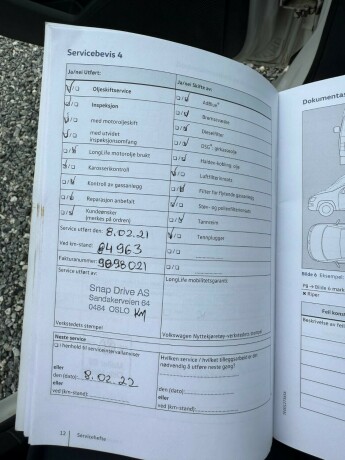 Servicebevis 4
Ja/nei Utført:
Ja/nei Skifte av:
Oljeskiftservice
Inspeksjon
med motoroljeskift
med utvidet
inspeksjonsomfang
LongLife motorolje brukt
Karosserikontroll
Kontroll av gassanlegg
Reparasjon anbefalt
Kundeønsker
(merkes på ordren)
AdBlue®
Bremsevæske
Dieselfilter
DSG®, girkassevæske
Haldex-kobling, olje
Luftfilterinnsats
Filter for flytende gassanlegg
Støv- og pollenfilterinnsats
Tannreim
Tennplugger
Service utført den: 8.02.21
Ved km-stand: 64963
Fakturanummer: 9098021
Service utført av:
Snap Drive AS
Sandakerveien 64
0484 OSLO KM
Verkstedets stempel
LongLife mobilitetsgaranti
Volkswagen Nyttekjøretøy-verkstedets stempel
Neste service
i henhold til serviceintervallanviser
eller
den (dato): 8.02.22
eller
ved (km-stand):
Hvilken service / hvilket tilleggsarbeid er det
nødvendig å utføre neste gang?
den (dato):
eller
ved (km-stand):
12 Servicehefte
Dokumentas
Bilde 6 Eksempel:
På → Bilde 6 mark
Riper
Feil kons
Beskrivelse av fei